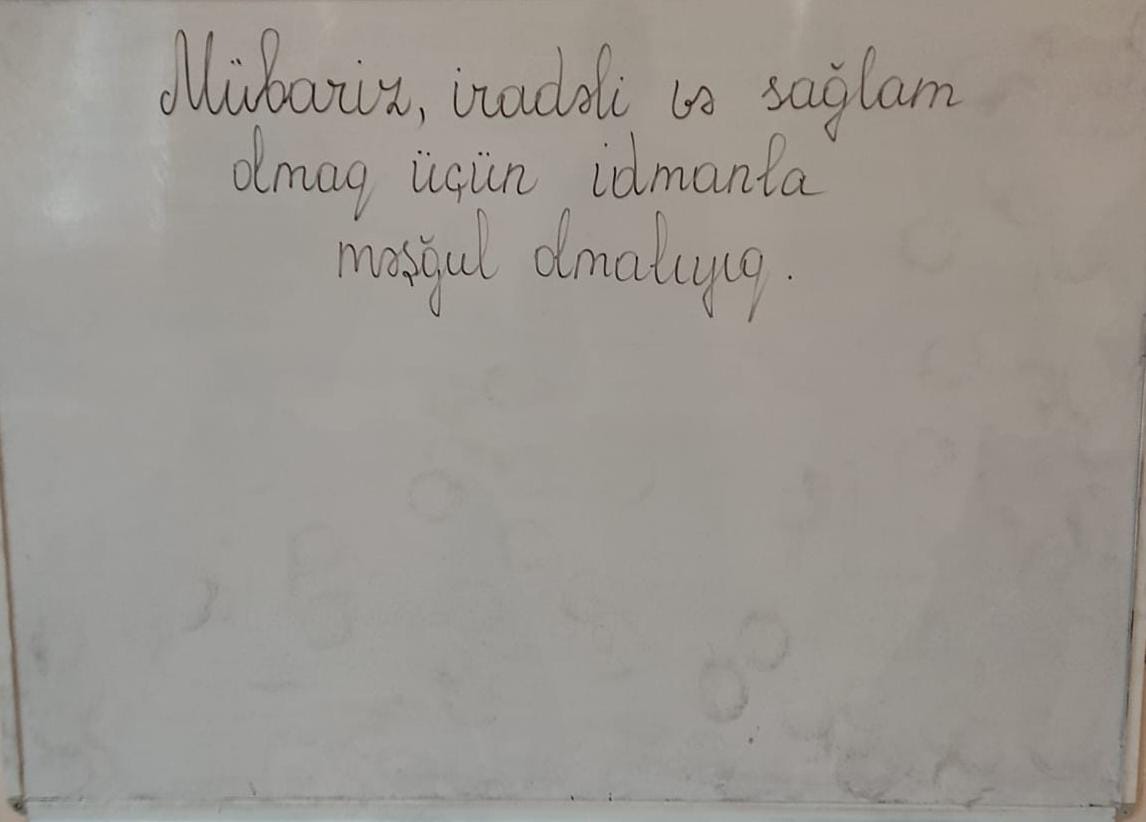 Mübariz, iradəli və sağlam
olmaq üçün idmanla
məşğul olmalıyıq.